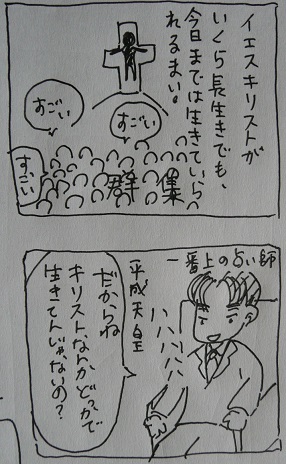 イエスキリストが
いくら長生きでも、
今日までは生きていら
れるまい。
すごい
すごい
すごい
群集
一番上の占い師
平成天皇
ハハハハハ
だからね
キリストなんかどっかで
生きてんじゃないの?